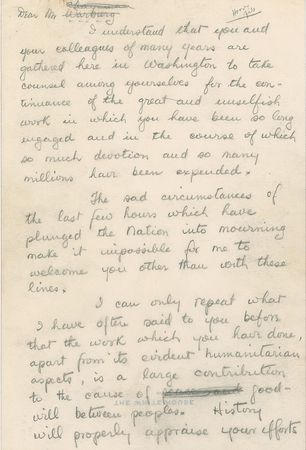 Dear Mr Warburg
I understand that you and
your colleagues of many years are
gathered here in Washington to take
counsel among yourselves for the con-
tinuance of the great and unselfish
work in which you have been so long
engaged and in the course of which
so much devotion and so many
millions have been expended.
The sad circumstances of
the last few hours which have
plunged the Nation into mourning
make it impossible for me to
welcome you other than with these
lines.
I can only repeat what
I have often said to you before
that the work which you have done,
apart from its evident humanitarian
aspects, is a large contribution
to the cause of good-
will between peoples. History
THE WHITE HOUSE
will properly appraise your efforts